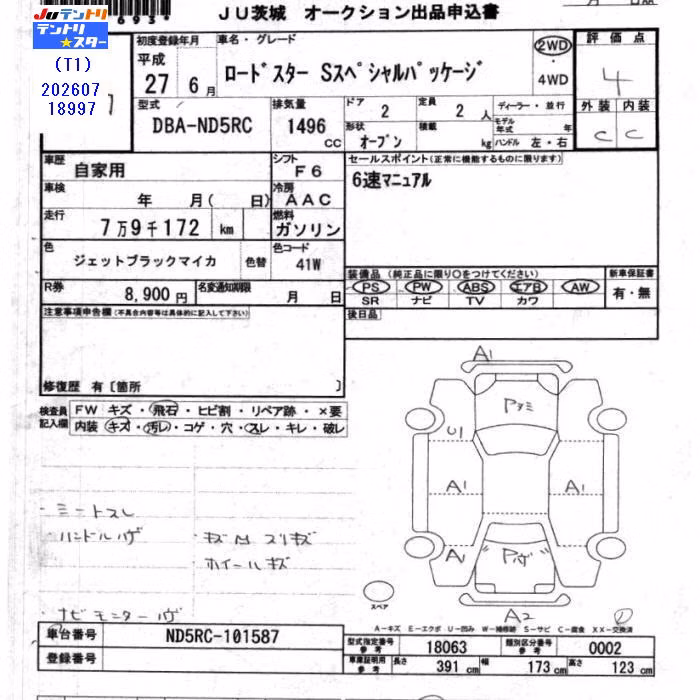 JU茨城 オークション出品申込書
Juテントリ
テントリ★スター
(T1)
202607
18997
初度登録年月 車名・グレード
平成 27 6月
ロードスター Sスペシャルパッケージ
2WD
4WD
評価点
4
外装 内装
C C
型式 DBA-ND5RC
排気量 1496 CC
ドア 2
定員 2 人
形状 オープン
積載 kg
ディーラー・並行
モデル年式 年
ハンドル 左・右
車歴 自家用
シフト F6
車検 年 月( 日)
冷房 AAC
走行 7万9千172 km
燃料 ガソリン
色 ジェットブラックマイカ 色替
色コード 41W
R券 8,900円
名変通知期限 月 日
セールスポイント(正常に機能するものに限ります)
6速マニュアル
装備品 (純正品に限り○をつけてください)
新車保証書
PS PW ABS エアB AW
SR ナビ TV カワ
有・無
後日品
注意事項申告欄(不具合内容等は具体的に記入して下さい)
修復歴 有〔箇所 〕
検査員記入欄
FW キズ・飛石・ヒビ割・リペア跡・×要
内装 キズ・汚レ・コゲ・穴・スレ・キレ・破レ
A1
U1
A1
A1
A1
A2
スペア
A-キズ E-エクボ U-凹み W-補修跡 S-サビ C-腐食 XX-交換済
車台番号 ND5RC-101587
登録番号
型式指定番号 参考 18063
類別区分番号 参考 0002
車庫証明用 参考 長さ 391 cm 幅 173 cm 高さ 123 cm